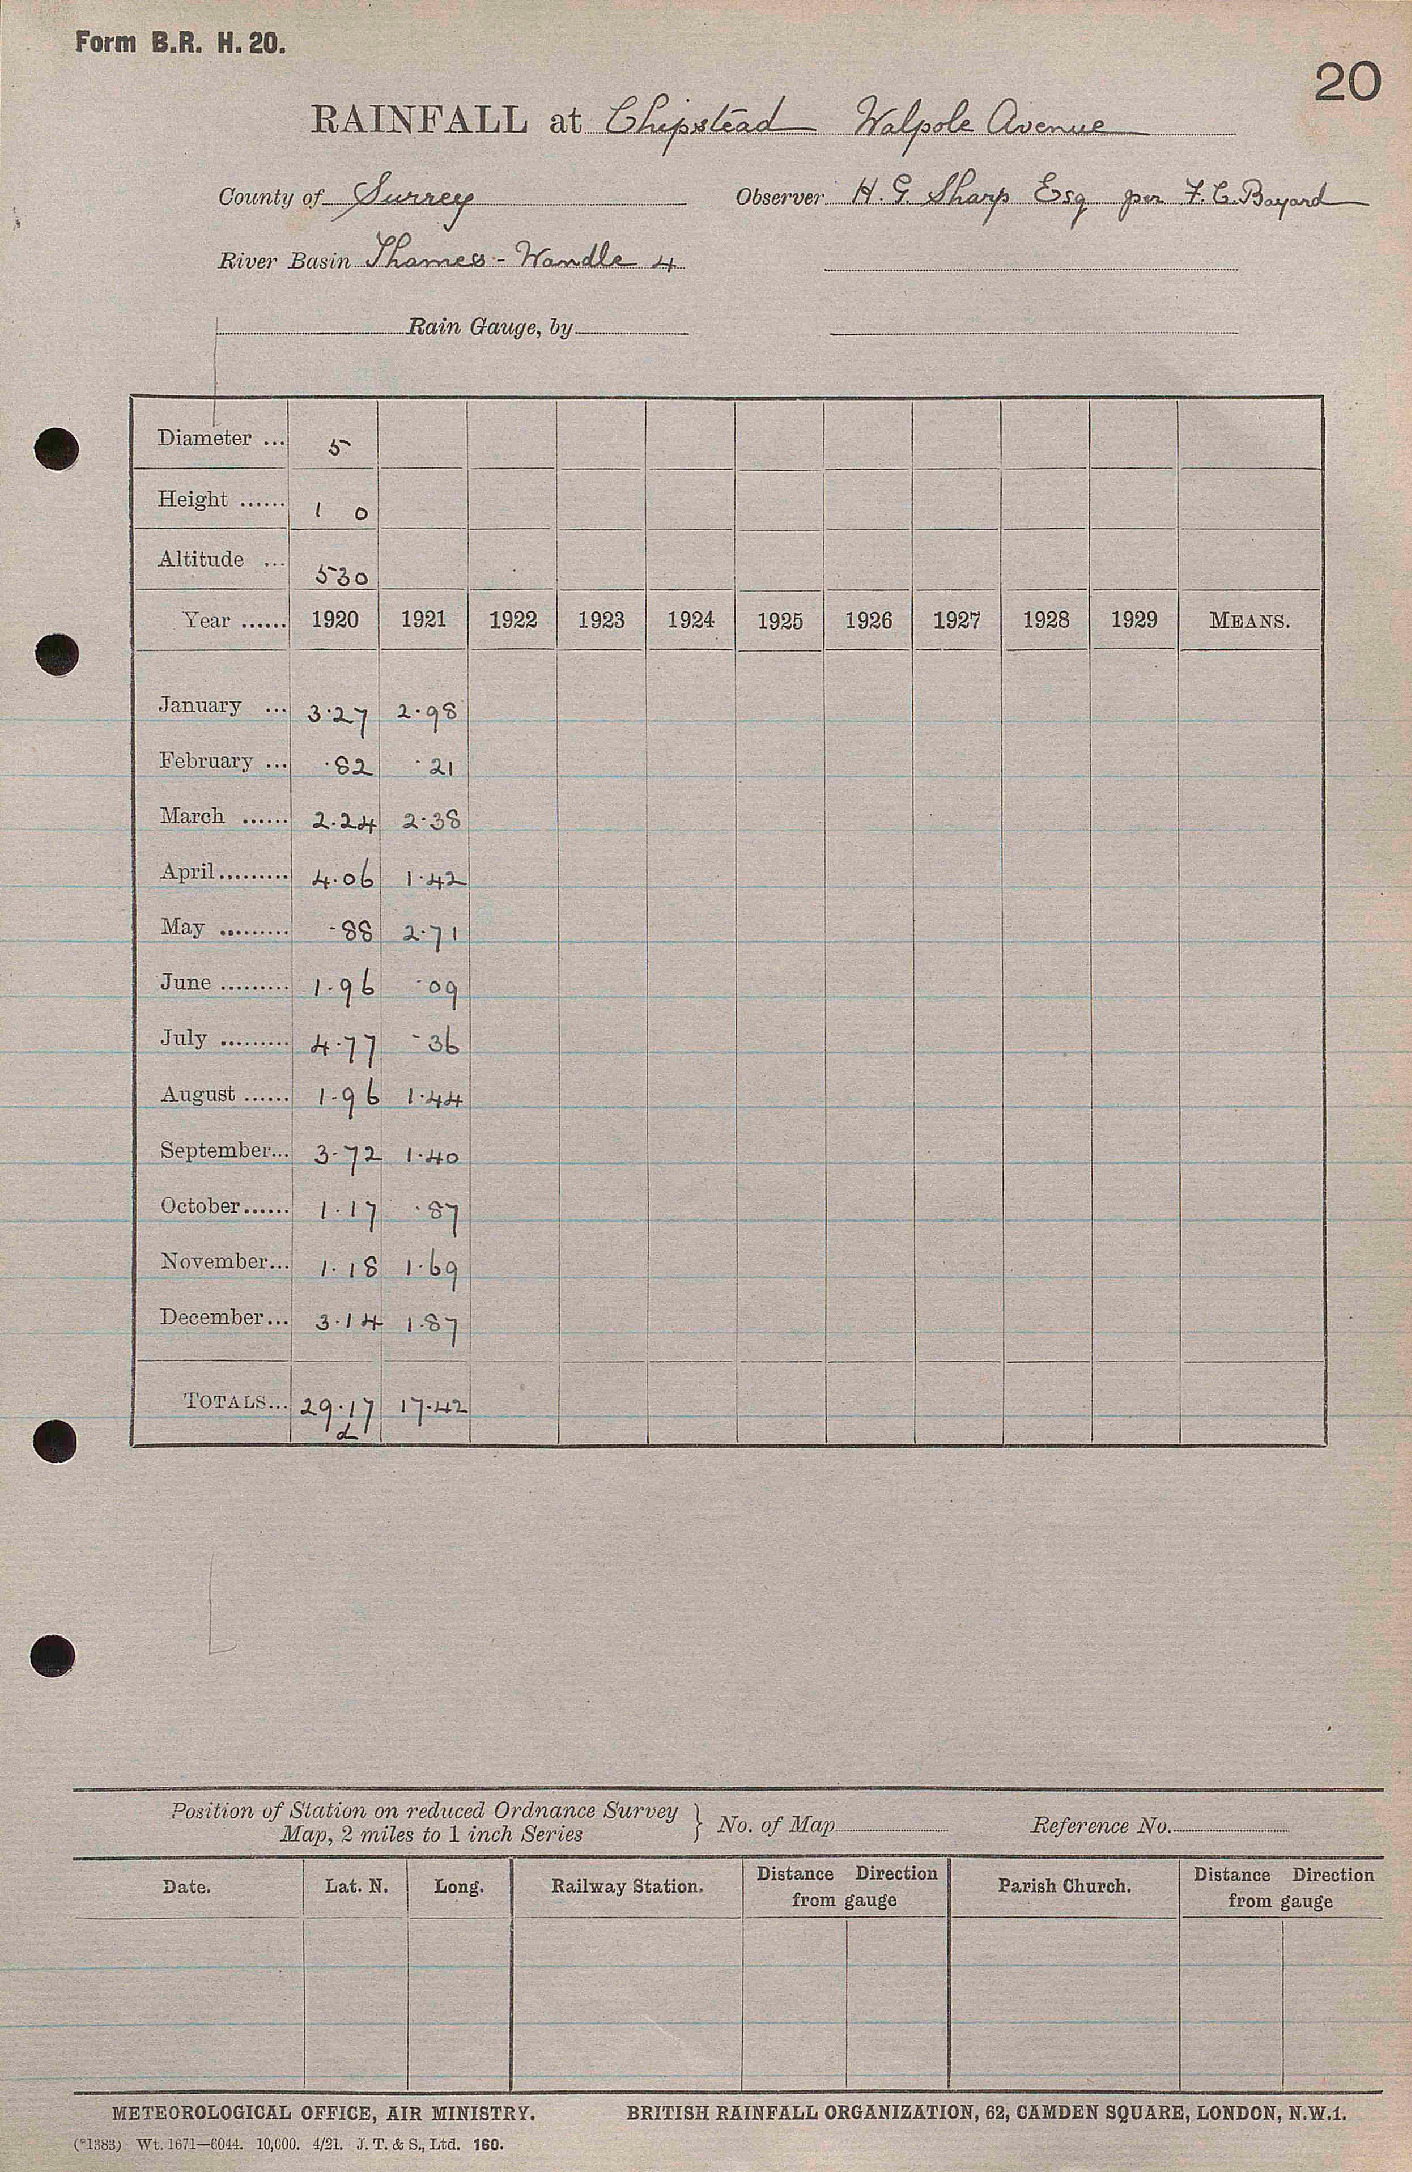 Form B.R. H. 20.
20
RAINFALL at Chipstead Walpole Avenue
County of Surrey Observer H. G. Sharp Esq per F. C. Bayard
River Basin Thames - Wandle 4
Rain Gauge, by
Diameter ... 5
Height ...... 1 0
Altitude ... 530
Year ...... 1920 1921 1922 1923 1924 1925 1926 1927 1928 1929 MEANS.
January ... 3.27 2.98
February ... .82 .21
March ...... 2.24 2.38
April......... 4.06 1.42
May ......... .88 2.71
June ......... 1.96 .09
July ......... 4.77 .36
August ...... 1.96 1.44
September... 3.72 1.40
October...... 1.17 .87
November... 1.18 1.69
December... 3.14 1.87
TOTALS... 29.17 17.42
Position of Station on reduced Ordnance Survey
Map, 2 miles to 1 inch Series } No. of Map Reference No.
Date. Lat. N. Long. Railway Station. Distance Direction from gauge Parish Church. Distance Direction from gauge
METEOROLOGICAL OFFICE, AIR MINISTRY. BRITISH RAINFALL ORGANIZATION, 62, CAMDEN SQUARE, LONDON, N.W.1.
(*1383) Wt. 1671—6044. 10,000. 4/21. J. T. & S., Ltd. 160.